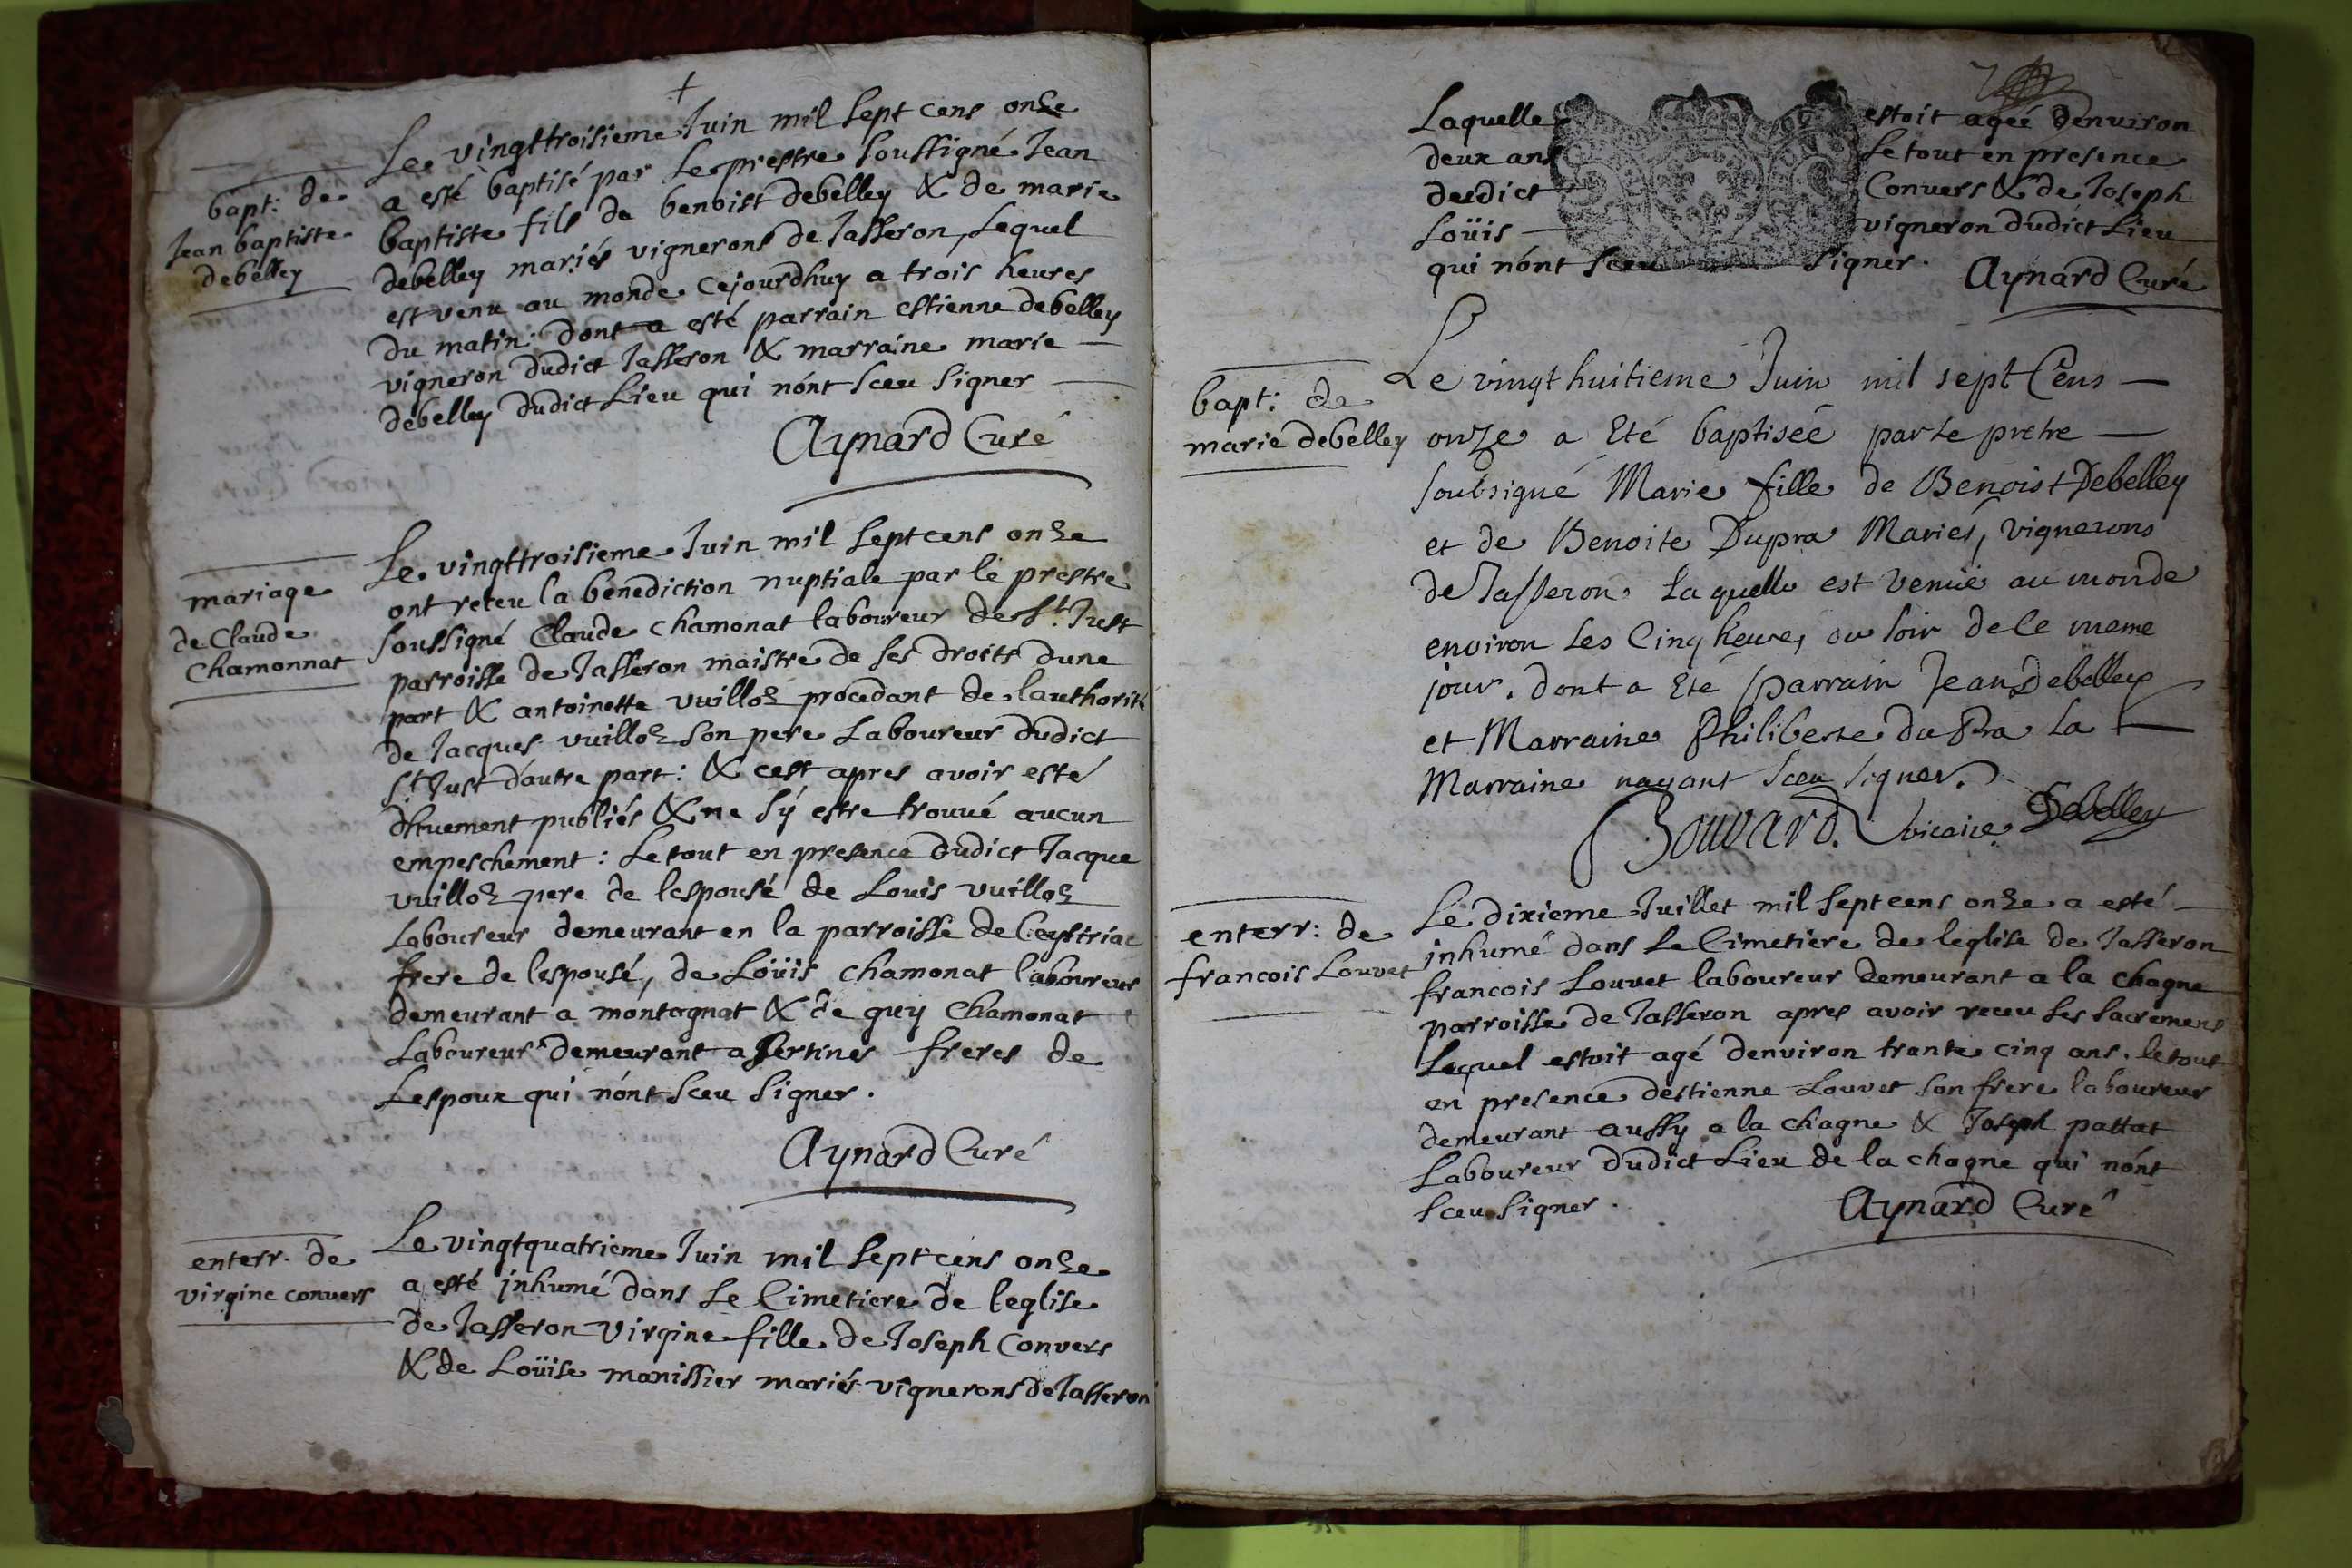 +
bapt: de
Jean baptiste
debelley
Le vingttroisieme Juin mil sept cens onze
a esté baptisé par Le prestre soussigné Jean
baptiste fils de benoist debelley & de marie
debelley mariés vignerons de Jasseron, Lequel
est venu au monde cejourdhuy a trois heures
du matin: dont a esté parrain estienne debelley
vigneron dudict Jasseron & marraine marie —
debelley dudict Lieu qui nónt sceu signer —
Aynard Curé
mariage
de Claude
Chamonnat
Le vingttroisieme Juin mil sept cens onze
ont receu la benediction nuptiale par le prestre
soussigné Claude chamonat laboureur de st. Just
parroisse de Jasseron maistre de ses droits dune
part & antoinette vuilloz procedant de lauthorité
de Jacques vuilloz son pere Laboureur dudict
st. Just dautre part: & cest apres avoir esté
dhuement publiés & ne sÿ estre trouué aucun
empeschement: Le tout en presence dudict Jacque
vuilloz pere de lespousé de Louis vuilloz
Laboureur demeurant en la parroisse de Ceystriac
frere de lespousé, de Loüis chamonat laboureur
demeurant a montagnat & de guy Chamonat
Laboureur demeurant a Sertines freres de
Lespoux qui nónt sceu signer.
Aynard Curé
enterr. de
virgine convers
Le vingtquatrieme Juin mil sept cens onze
a esté inhumé dans Le Cimetiere de leglise
de Jasseron virgine fille de Joseph Convers
& de Loüise monissier mariés vignerons de Jasseron
Laquelle estoit ageé denviron
deux ans Le tout en presence
dudict Convers & de Joseph
Loüis — vigneron dudict Lieu
qui nónt sceu signer.
Aynard Curé
bapt: de
marie debelley
Le vingt huitieme Juin mil sept Cens —
onze a Eté baptiseé par Le pretre —
soubsigné Marie fille de Benoist Debelley
et de Benoite Dupra Mariés, vignerons
de Jasseron. Laquelle est venuë au monde
environ Les Cinq heures du soir de Ce meme
jour. dont a Eté parrain Jean Debelley
et Marraine Philiberte DuPra La —
Marraine nayant sceu signer.
Bouvard. vicaire. Debelley
enterr: de
francois Louvet
Le dixieme Juillet mil sept cens onze a esté —
inhumé dans Le Cimetiere de leglise de Jasseron
francois Louvet laboureur demeurant a la chagne
parroisse de Jasseron apres avoir receu ses sacremens
Lequel estoit agé denviron trante cinq ans. le tout
en presence destienne Louvet son frere laboureur
demeurant aussy a la chagne & Joseph pattat
Laboureur dudict Lieu de la chagne qui nónt
sceu signer.
Aynard Curé